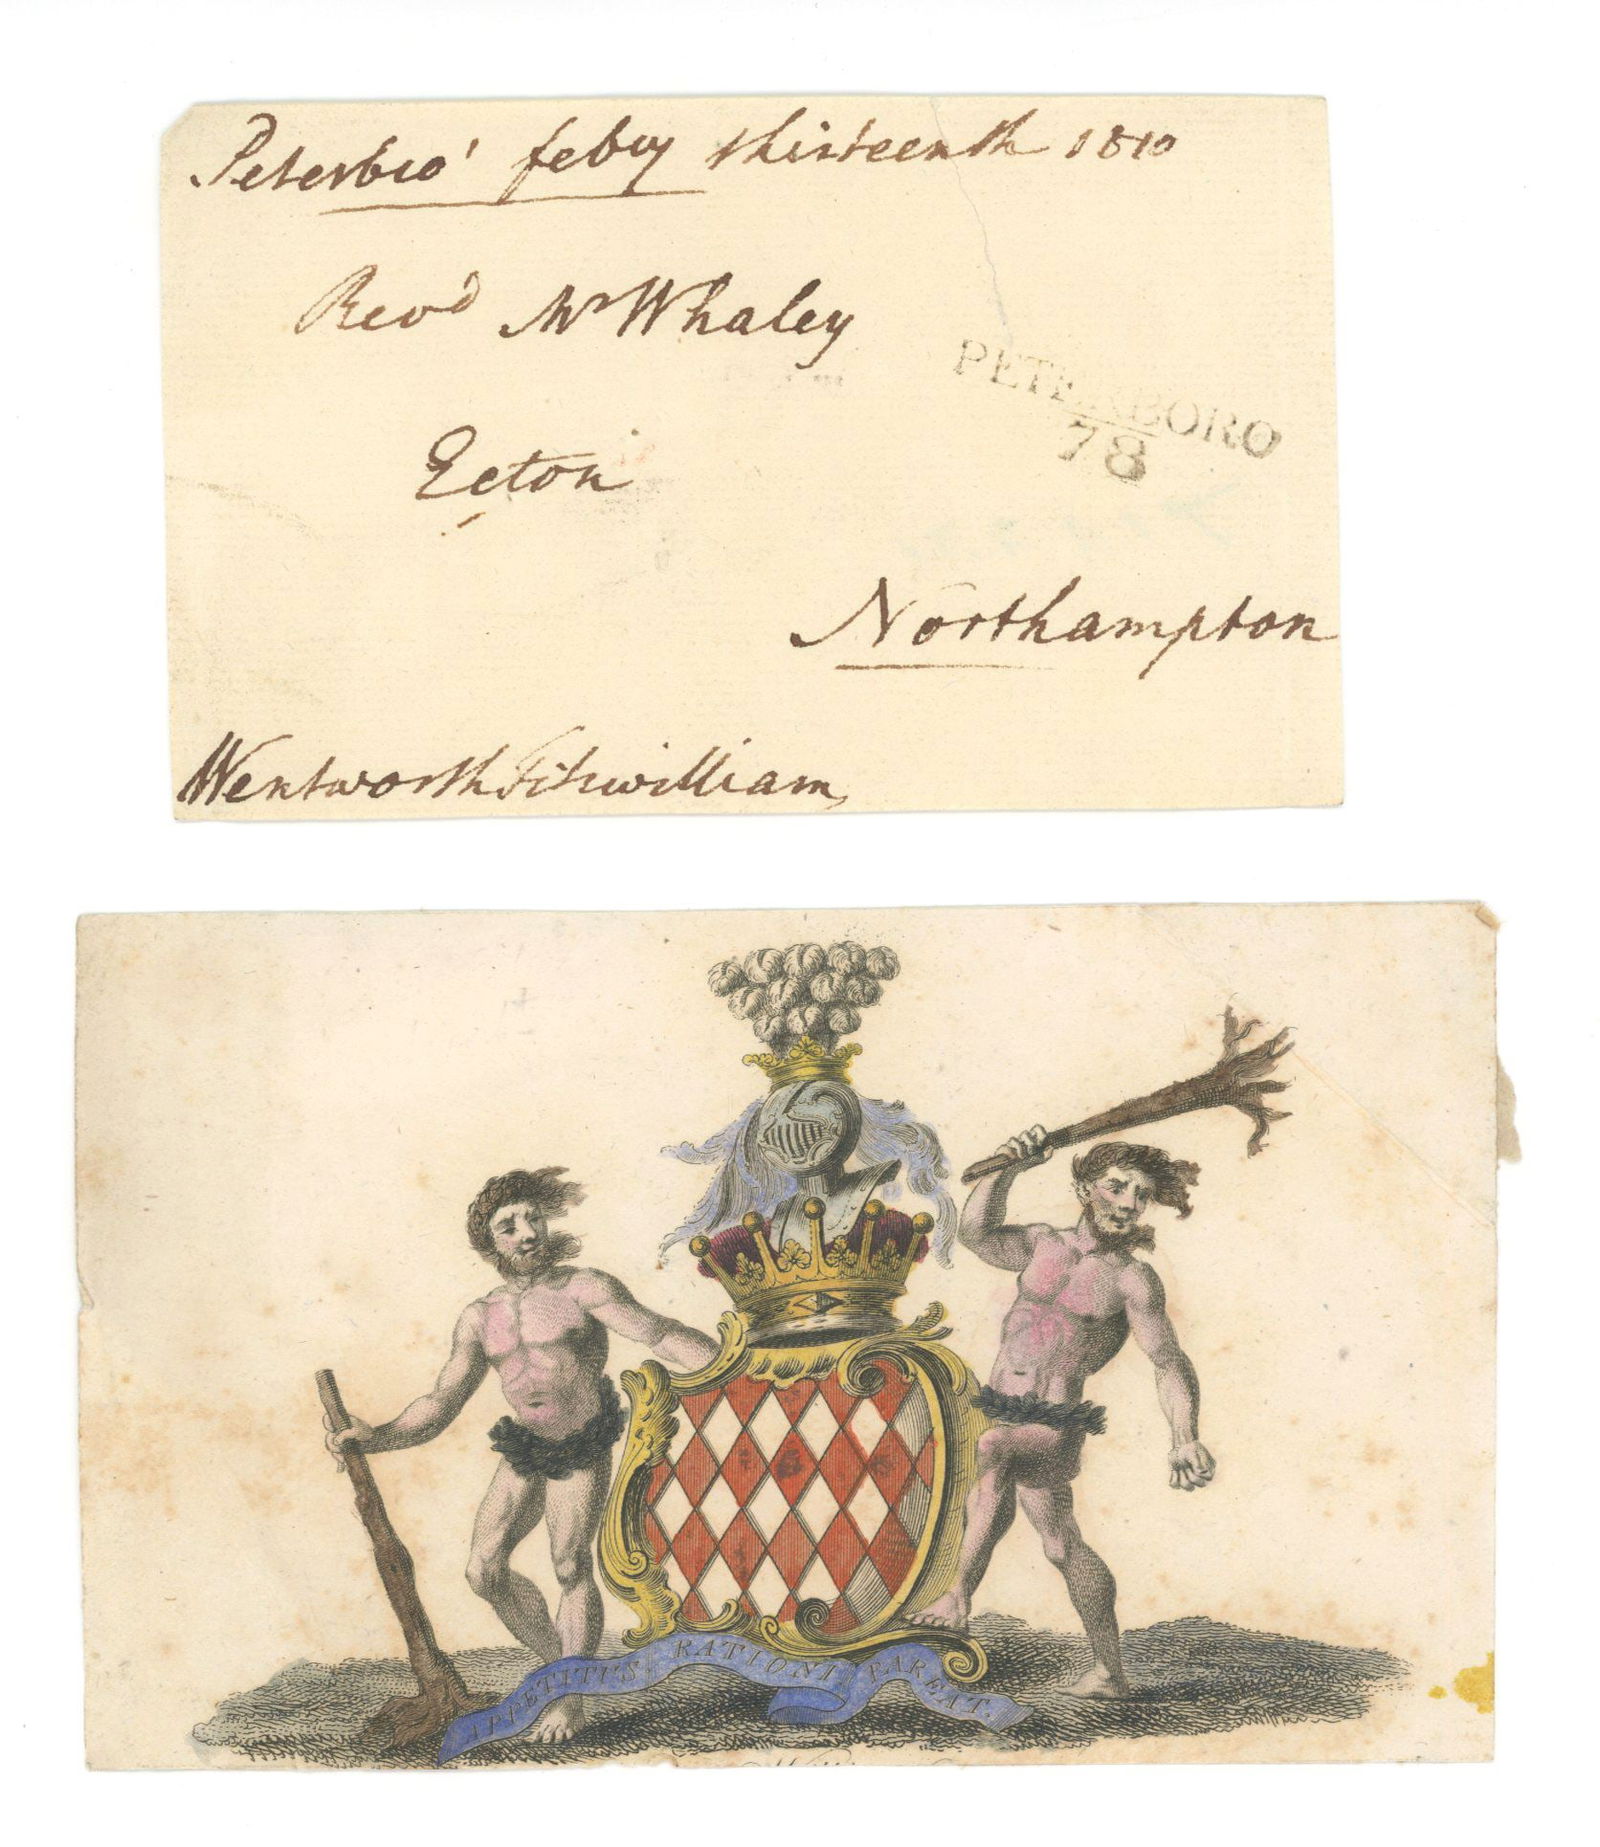 Peterbro' feby thirteenth 1810
Rev'd Mr Whaley
PETERBORO
78
Ecton
Northampton
Wentworth Fitzwilliam
APPETITUS RATIONI PAREAT.